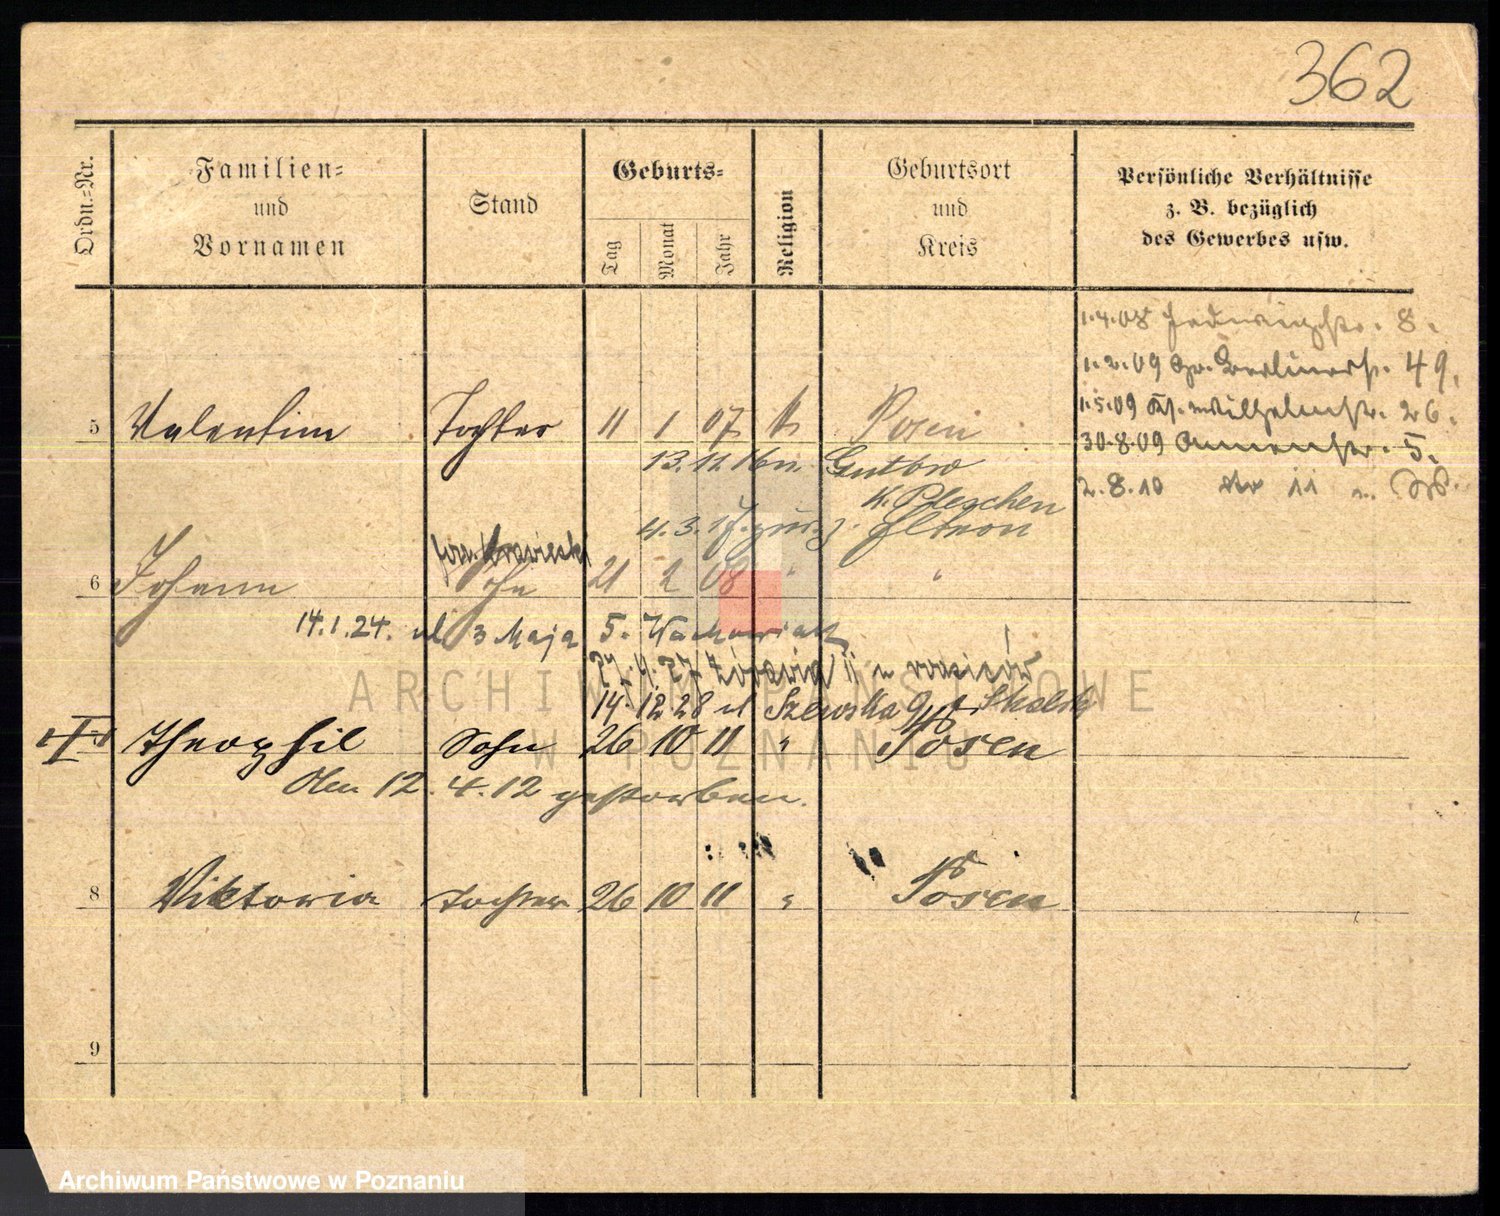 362
Ordn.-Nr.
Familien-
und
Vornamen
Stand
Geburts-
Tag
Monat
Jahr
Religion
Geburtsort
und
Kreis
Persönliche Verhältnisse
z. B. bezüglich
des Gewerbes usw.
1.4.08 Hedwigstr. 8.
1.2.09 Gr. Berlinerstr. 49.
1.5.09 Wilhelmstr. 26.
30.8.09 Annenstr. 5.
2.8.10 11
5 Valentine Tochter 11 1 07 k Posen
13.11.16 n. Gutow
K. Pleschen
4.3.17. zur. z. Eltern
6 Johann Sohn 21 2 08 " "
14.1.24. ul 3 Maja 5.
27.4.27 Żórawia 11
14.12.28 ul Szewska 9
7 Theophil Sohn 26 10 11 " Posen
Am 12.4.12 gestorben.
8 Viktoria Tochter 26 10 11 " Posen
9
ARCHIWUM PAŃSTWOWE
W POZNANIU
Archiwum Państwowe w Poznaniu